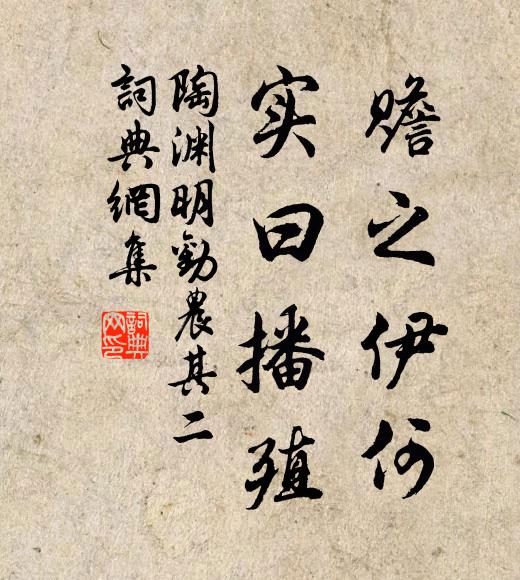 赡之伊何
实曰播殖
陶渊明勸農其二
詞典網集
詞典网印